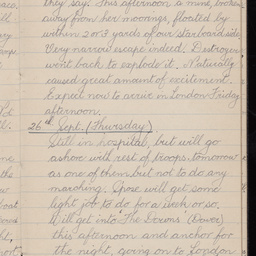 they say. This afternoon a mine, broken
away from her moorings, floated by
within 2 or 3 yards of our starboard side.
Very narrow escape indeed. Destroyer
went back to explode it. Naturally
caused great amount of excitement.
Expect now to arrive in London Friday
afternoon.
26th Sept. (Thursday)
Still in hospital, but will go
ashore with rest of troops tomorrow
as one of them but not to do any
marching. Spose will get some
light job to do for a week or so.
Will get into "The Downs" (Dover)
this afternoon and anchor for
the night, going on to London